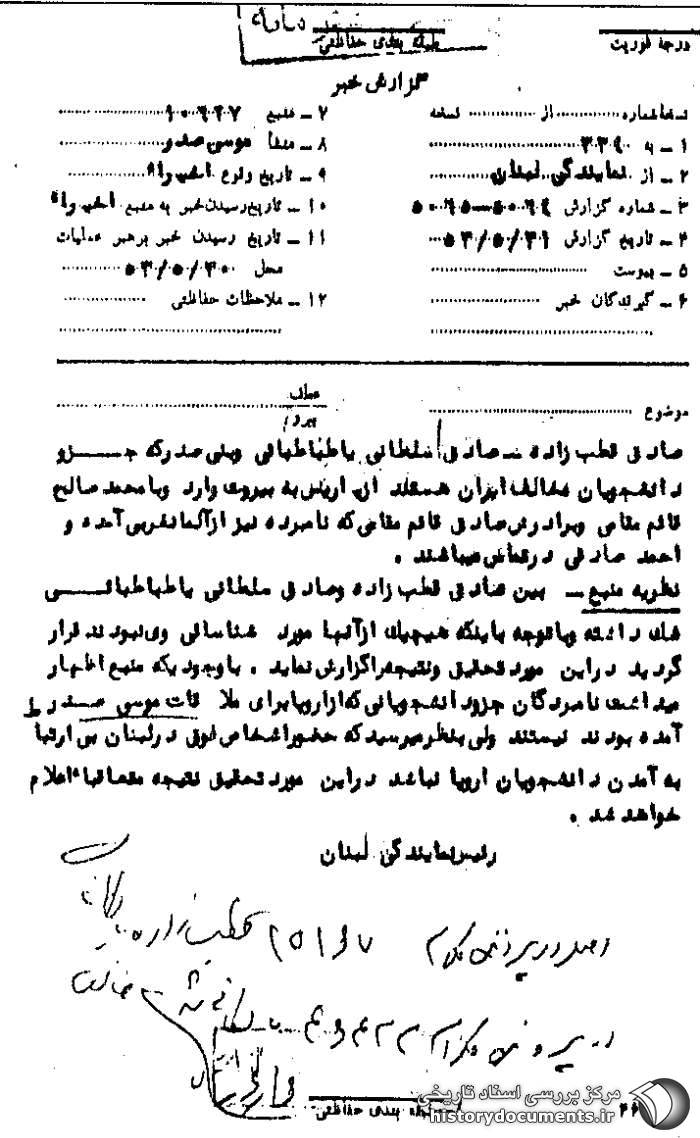 درجه فوریت
طبقه بندی حفاظتی
گزارش خبر
نسخه شماره ........ از ........ نسخه
۱ - به ۳۳۴۰
۲ - از نمایندگی لبنان
۳ - شماره گزارش
۴ - تاریخ گزارش ۵۳/۵/۳۱
۵ - پیوست
۶ - گیرندگان خبر
۷ - منبع
۸ - منشأ موسی صدر
۹ - تاریخ وقوع اخیرا"
۱۰ - تاریخ رسیدن خبر به منبع اخیرا"
۱۱ - تاریخ رسیدن خبر برهبر عملیات
محل ۵۳/۵/۳۰
۱۲ - ملاحظات حفاظتی
موضوع
عطف
پیرو
صادق قطب زاده - صادق سلطانی یا طباطبائی وبنی صدر که جزو
دانشجویان مخالف ایران هستند از پاریس به بیروت وارد وبا محمد صالح
قائم مقامی وبرادرش صادق قائم مقامی که نامبرده نیز از آلمانغربی آمده و
احمد صادقی در تماس میباشند .
نظریه منبع - بین صادق قطب زاده وصادق سلطانی یا طباطبائی
شک داشته وباتوجه باینکه هیچیک ازآنها مورد شناسائی وی نبودند قرار
گردید در این مورد تحقیق ونتیجه راگزارش نماید . با وجودیکه منبع اظهار
میداشت نامبردگان جزو دانشجویانی که از اروپا برای ملاقات موسی صدر
آمده بودند نیستند ولی بنظر میرسید که حضور اشخاص فوق در لبنان بی ارتباط
به آمدن دانشجویان اروپا نباشد در این مورد تحقیق نتیجه متعاقبا" اعلام
خواهد شد .
رئیس نمایندگی لبنان
طبقه بندی حفاظتی
مرکز بررسی اسناد تاریخی
historydocuments.ir